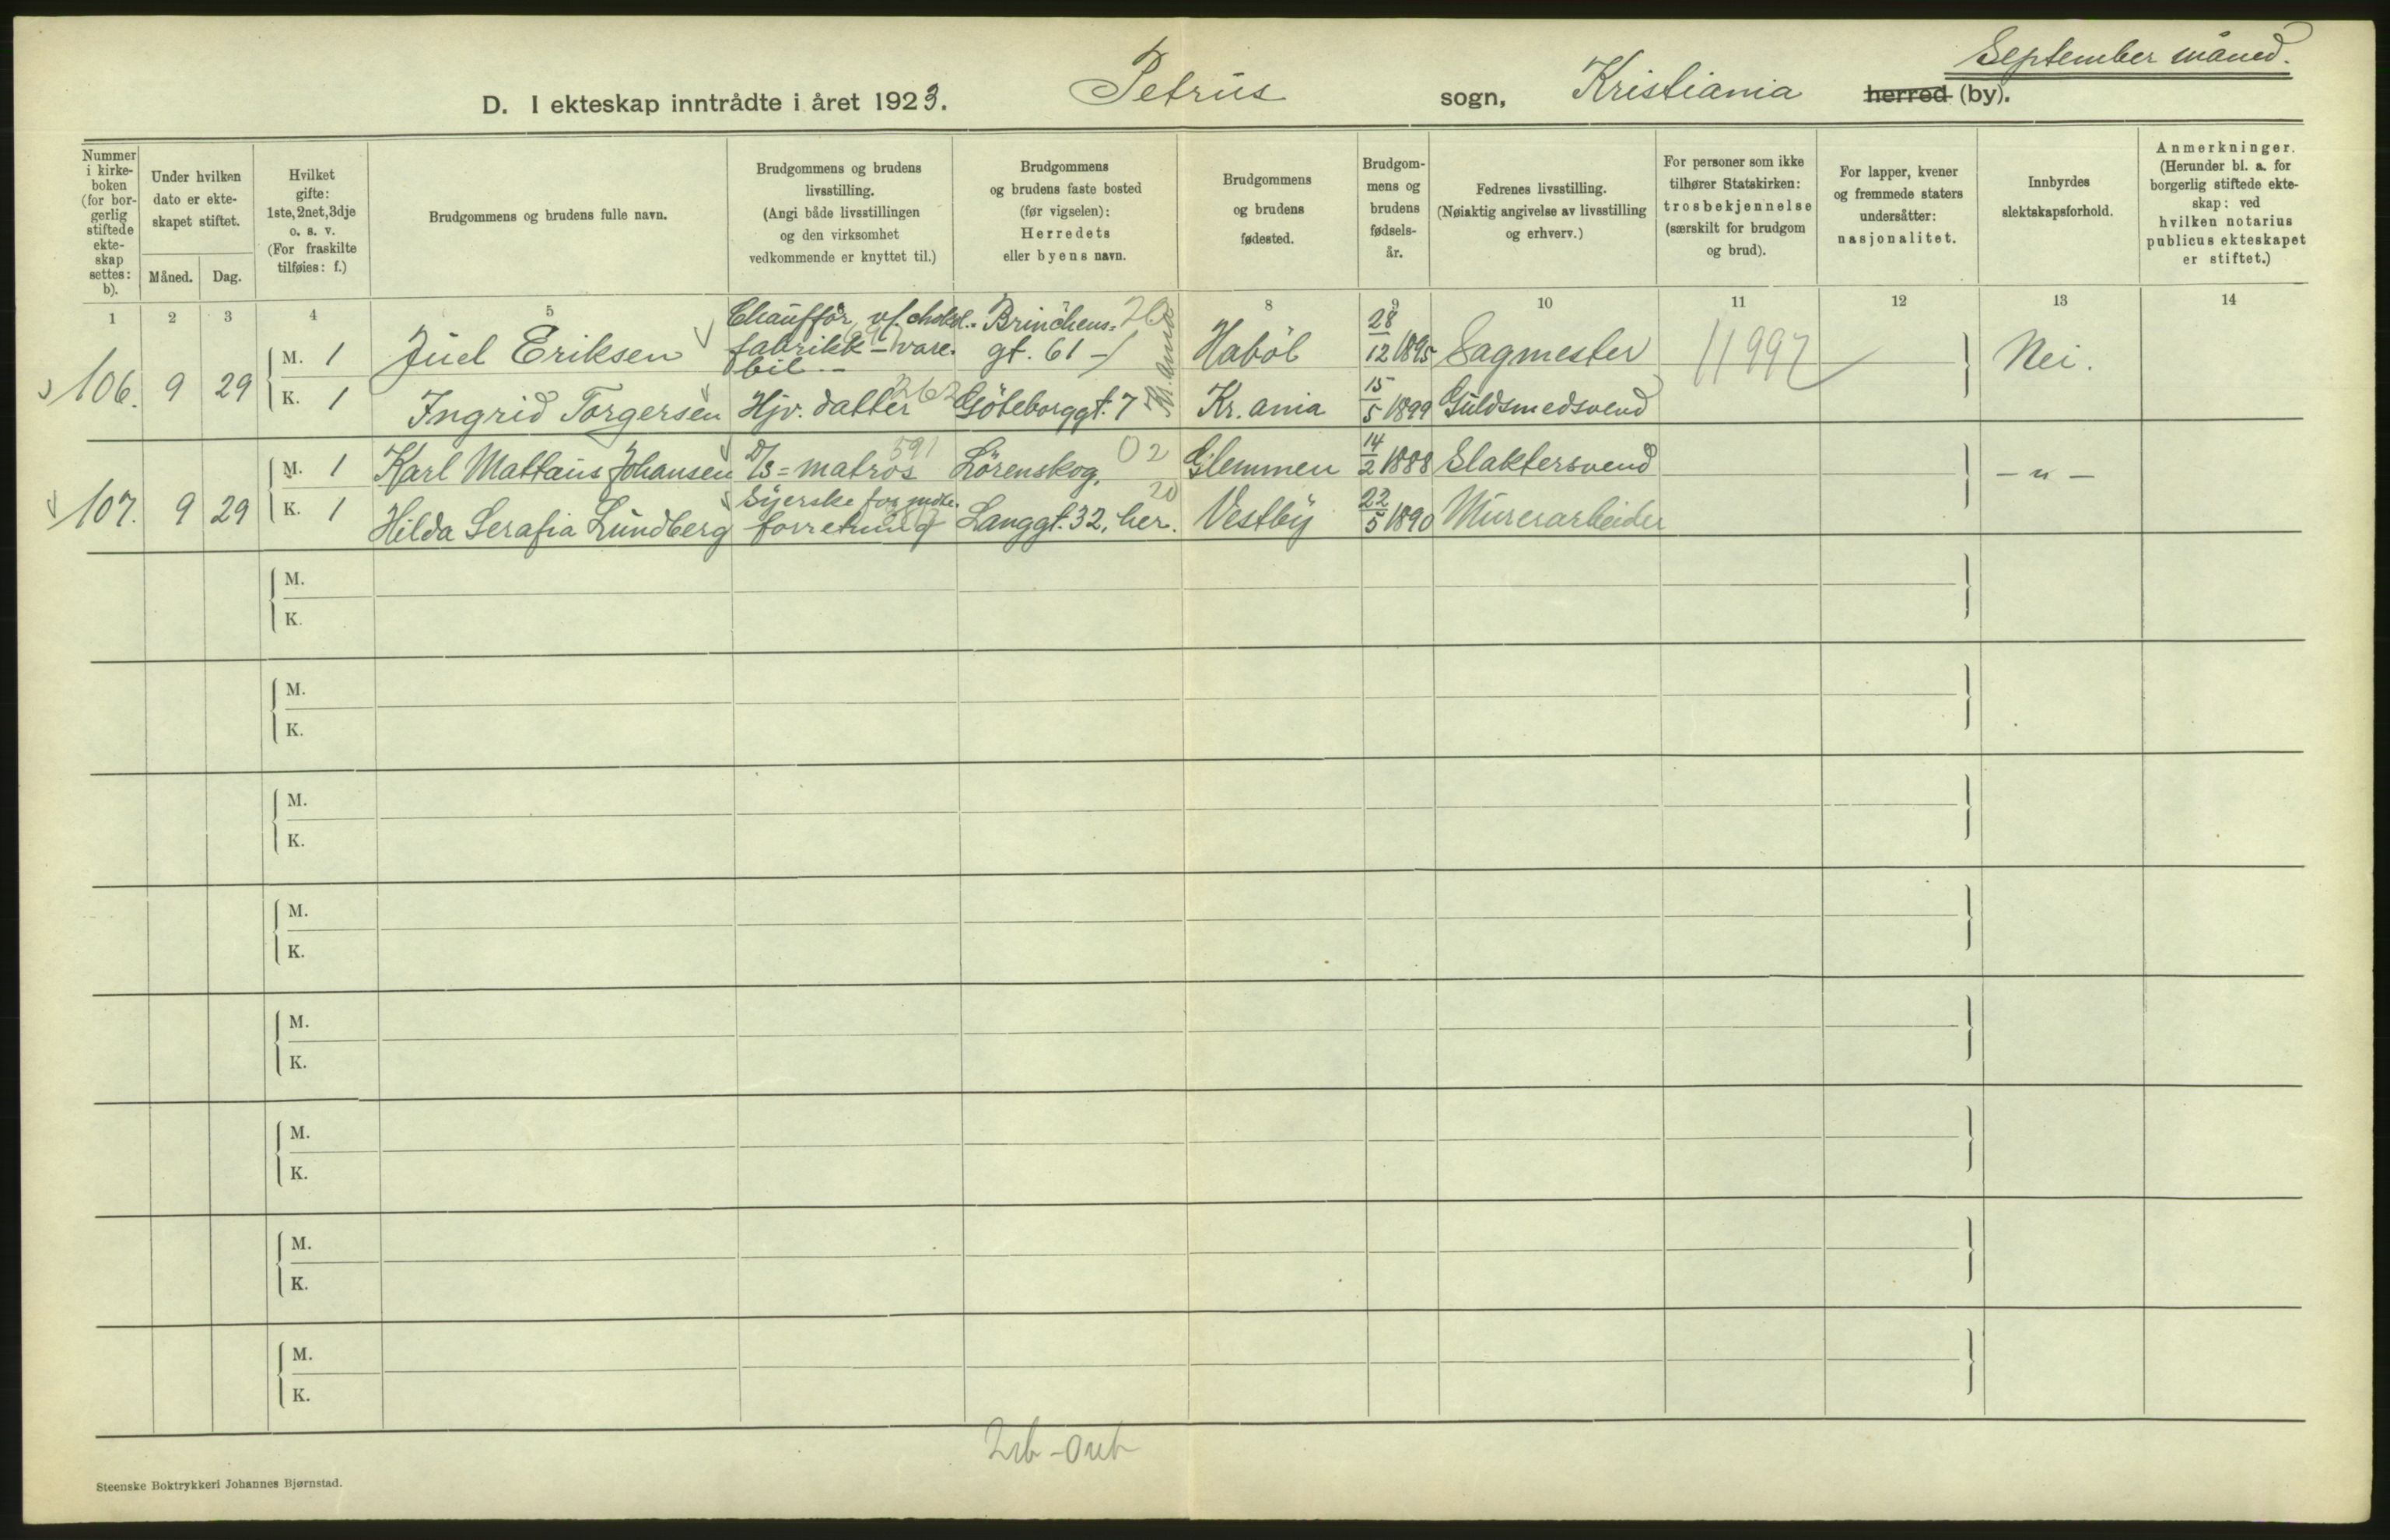 September måned.
D. I ekteskap inntrådte i året 1923. Petrus sogn, Kristiania herred (by).
Nummer i kirkeboken (for borgerlig stiftede ekteskap settes: b).
Under hvilken dato er ekteskapet stiftet.
Måned. Dag.
Hvilket gifte: 1ste, 2net, 3dje o. s. v. (For fraskilte tilføies: f.)
Brudgommens og brudens fulle navn.
Brudgommens og brudens livsstilling. (Angi både livsstillingen og den virksomhet vedkommende er knyttet til.)
Brudgommens og brudens faste bosted (før vigselen): Herredets eller byens navn.
Brudgommens og brudens fødested.
Brudgommens og brudens fødselsår.
Fedrenes livsstilling. (Nøiaktig angivelse av livsstilling og erhverv.)
For personer som ikke tilhører Statskirken: trosbekjennelse (særskilt for brudgom og brud).
For lapper, kvener og fremmede staters undersåtter: nasjonalitet.
Innbyrdes slektskapsforhold.
Anmerkninger. (Herunder bl. a. for borgerlig stiftede ekteskap: ved hvilken notarius publicus ekteskapet er stiftet.)
1 2 3 4 5 8 9 10 11 12 13 14
106. 9 29 M. 1 Juel Eriksen Chauffør v/ chokol. fabrikk - vare bil - Brinchens gt. 61 - 20 Habøl 28/12 1895 Sagmester 11997 Nei.
K. 1 Ingrid Torgersen Hjv. datter 262 Göteborggt. 7 Kr.ania Kr.ania 15/5 1899 Guldsmedsvend
107. 9 29 M. 1 Karl Mattæus Johansen D/s = matros 591 Lörenskog. 02 Glemmen 14/2 1888 Slaktersvend - " -
K. 1 Hilda Serafia Lundberg Syerske for forretning Langgt. 32, her. 20 Vestby 22/5 1890 Murerarbeider
M.
K.
M.
K.
M.
K.
M.
K.
M.
K.
M.
K.
M.
K.
M.
K.
Steenske Boktrykkeri Johannes Bjørnstad.